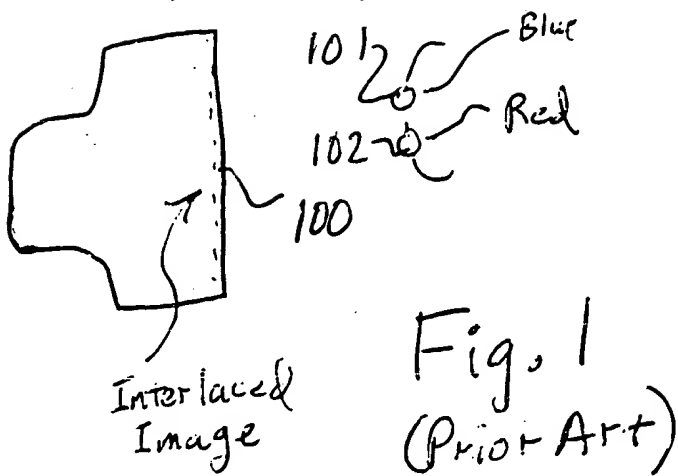 101
Blue
Red
102
100
Interlaced
Image
Fig. 1
(Prior Art)